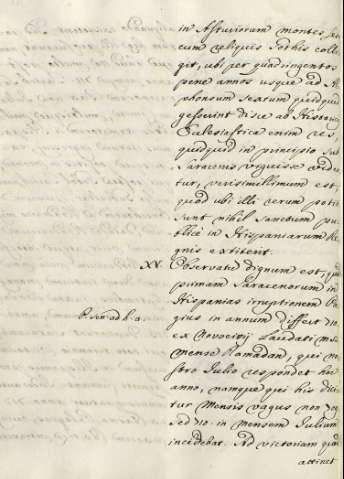 in Asturiorum montes se
cum reliquis Gothis colle
git, ubi per quadringentos
pene annos usque ad Al
phonsum Sextum quidquid
gesserint disce ab Historia
Ecclesiastica enim res
quidquid in principio sub
Saracenis viguisse vide
tur, verisimillimum est,
quod ubi illi rerum potiti
sunt nihil Sanctum pu
blice in Hispaniarum Re
gnis extiterit.
XV. Observatu dignum est, quod
primam Saracenorum in
Hispanias irruptionem Pa
gius in annum differt
laudati
mense Ramadan, qui no
stro Julio respondet hoc
anno, namque qui his dici
tur Mensis vagus non
sed 10. in mensem Julium
incidebat. Ad victoriam quod
attinet